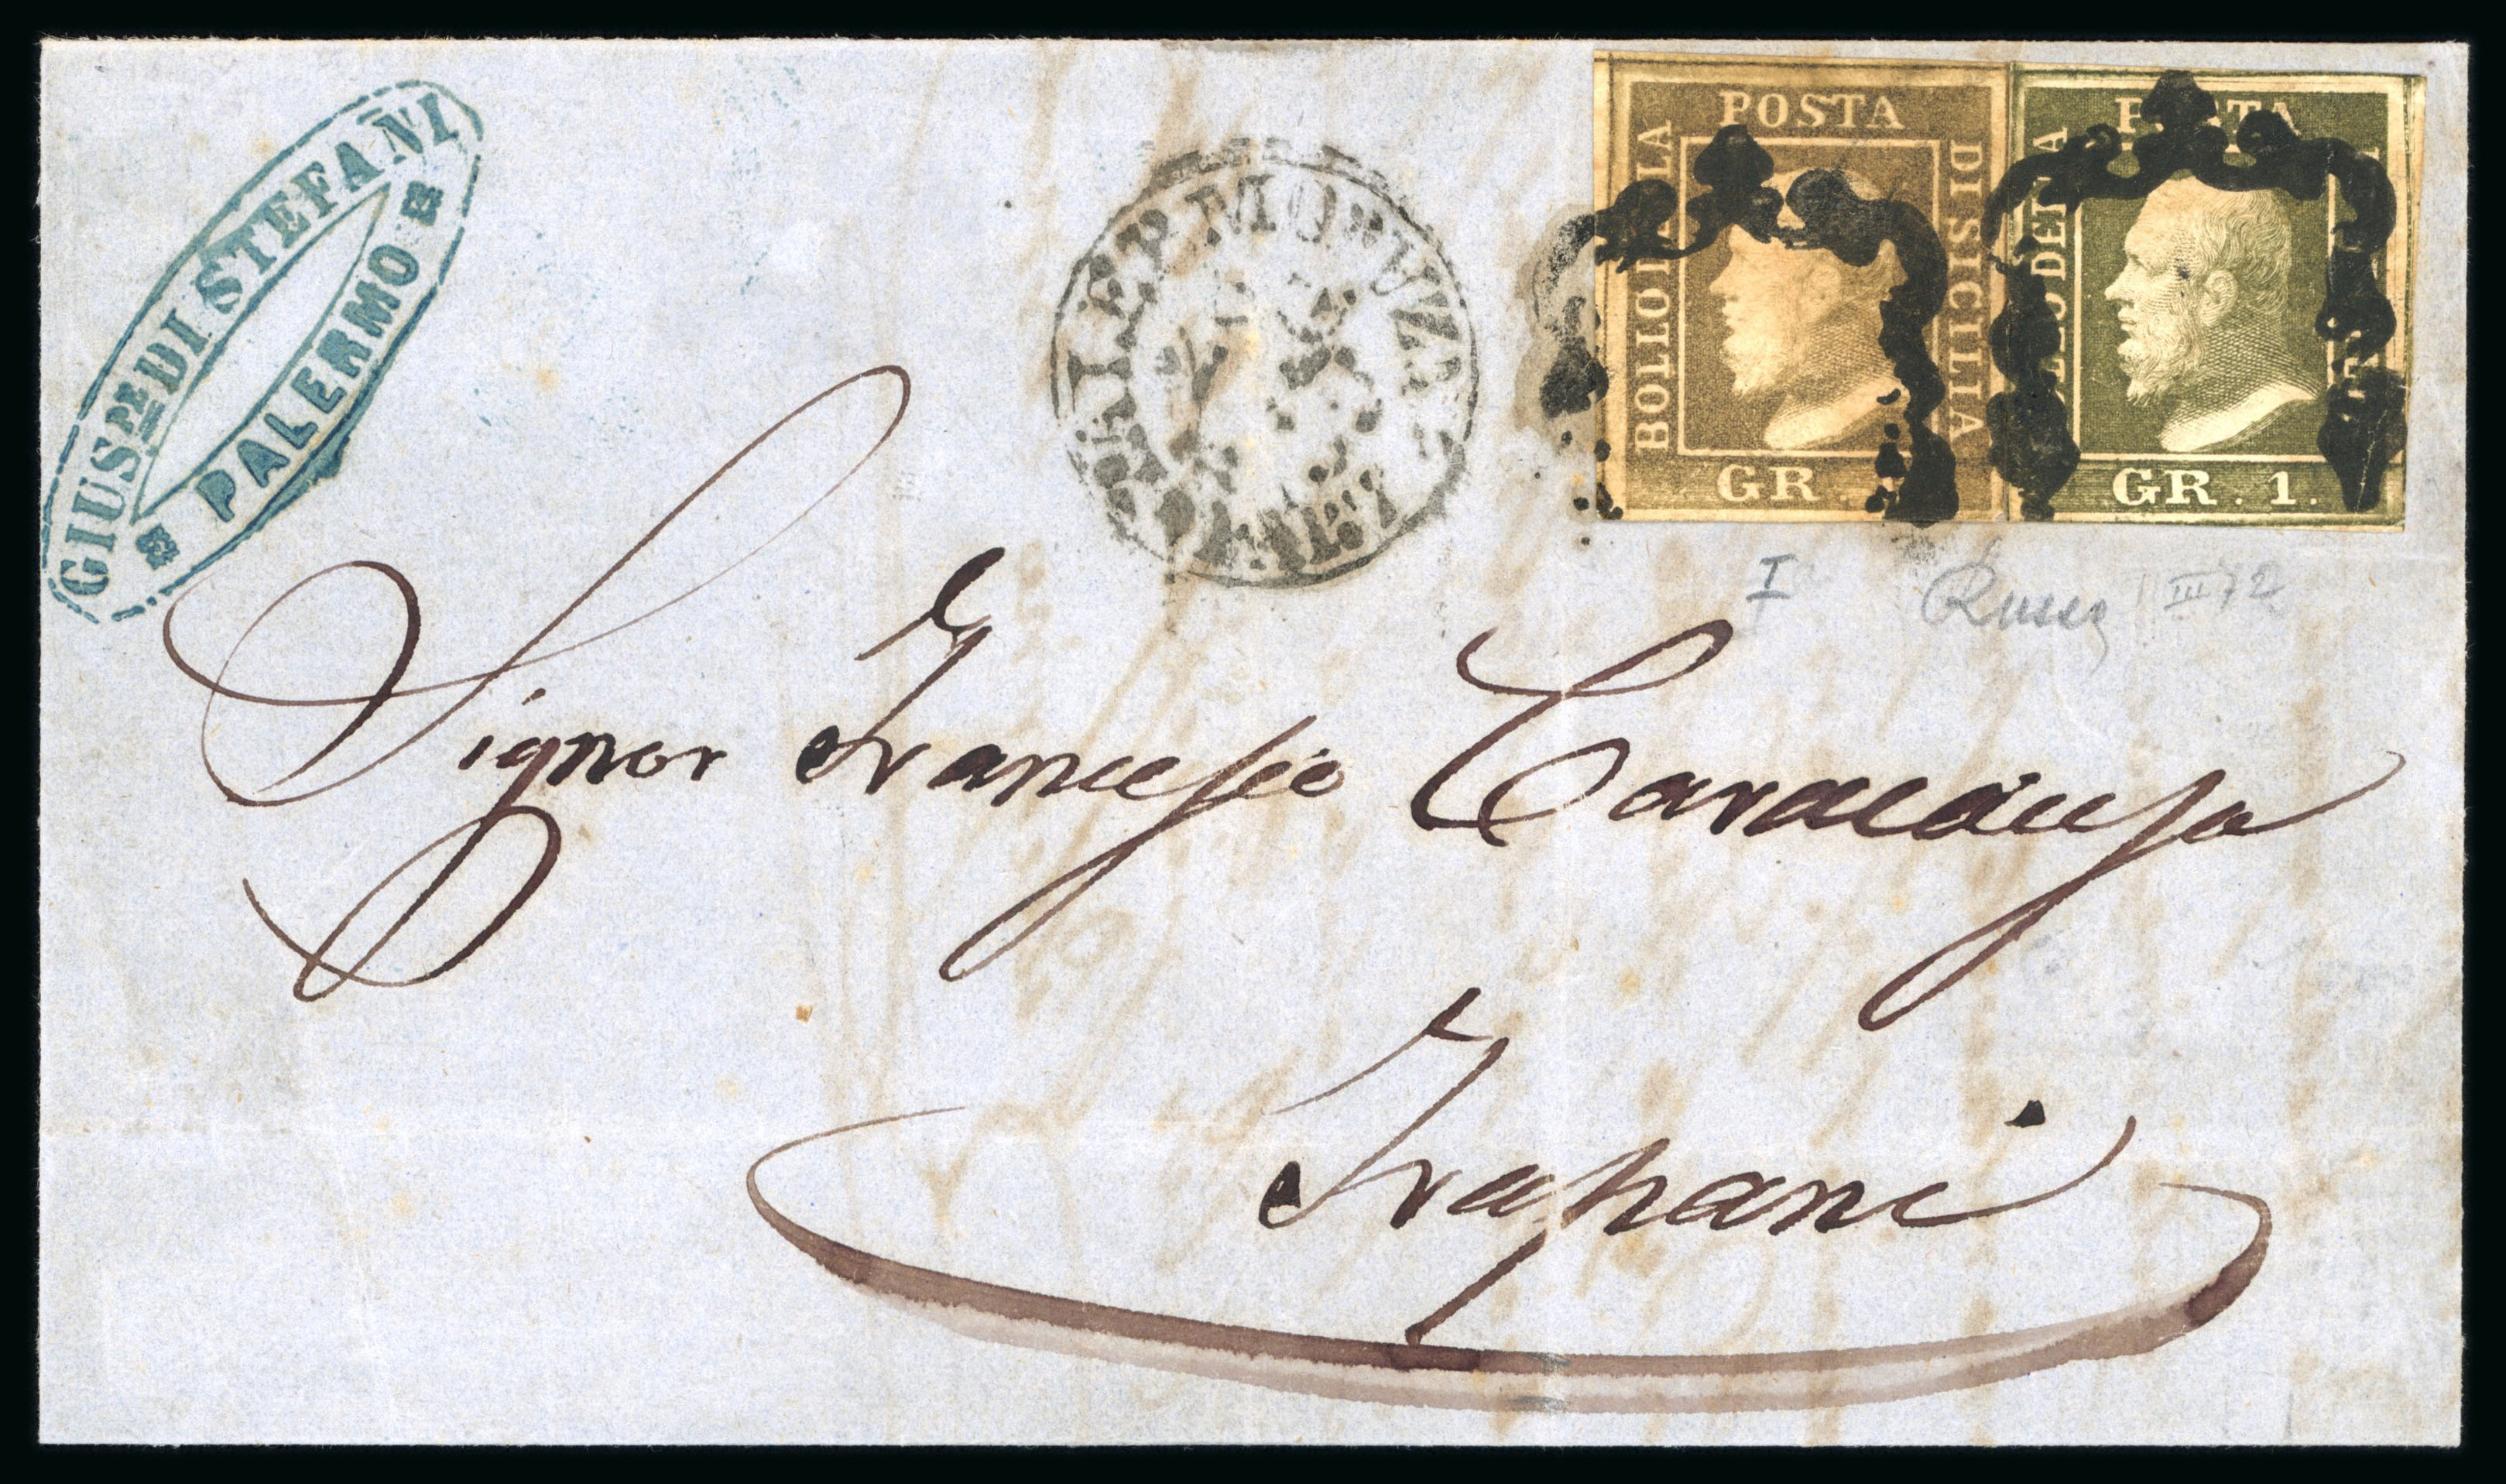 GIUS.PE DI STEFANI
PALERMO
PALERMO
POSTA
BOLLO DELLA
DI SICILIA
GR.
POSTA
BOLLO DELLA
GR. 1.
I
III 72
Signor Francesco
Trapani